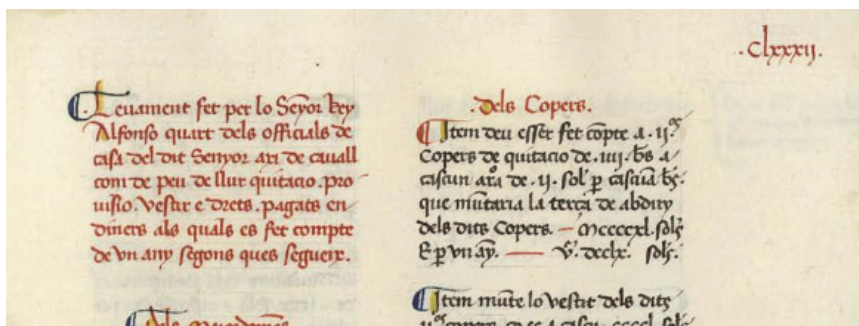 .clxxxij.
Leuament fet per lo Senyor Rey
Alfonso quart dels officials de
casa del dit Senyor axi de cauall
com de peu de llur quitacio . pro
uisio . vestir e drets . pagats en
diners als quals es fet compte
de vn any segons ques segueix .
. dels Copers .
Item deu esser fet compte a . ij.os
Copers de quitacio de . iiij . bs a
cascun ara de . ij . sol p cascua bs .
que muntaria la terça de abduy
dels dits Copers . — Mccccxl . sols
E p vn ay . — v . dcclx . sols .
Item munte lo vestir dels dits